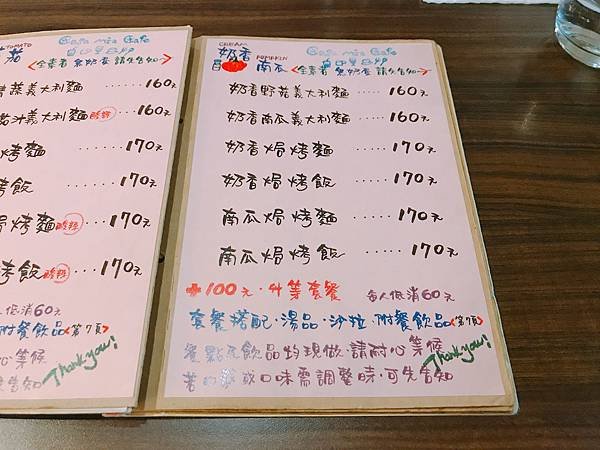 TOMATO
茄
Casa mia Cafe
<全素者 無奶蛋 請先告知>
蔬義大利麵 ...... 160元
汁義大利麵 酸辣 .... 160元
烤麵 ...... 170元
烤飯 ...... 170元
焗烤麵 酸辣 .... 170元
烤飯 酸辣 .... 170元
人低消60元
附餐飲品<第7頁>
心等候
告知
Thank you!
CREAM
奶香 PUMPKIN
南瓜
Casa mia Cafe
<全素者 無奶蛋 請先告知>
奶香野菇義大利麵 .... 160元
奶香南瓜義大利麵 .... 160元
奶香焗烤麵 ........ 170元
奶香焗烤飯 ........ 170元
南瓜焗烤麵 ........ 170元
南瓜焗烤飯 ........ 170元
+100元·升等套餐 每人低消60元
套餐搭配·湯品·沙拉·附餐飲品<第7頁>
餐點及飲品均現做·請耐心等候
若 或口味需調整時·可先告知
Thank you!